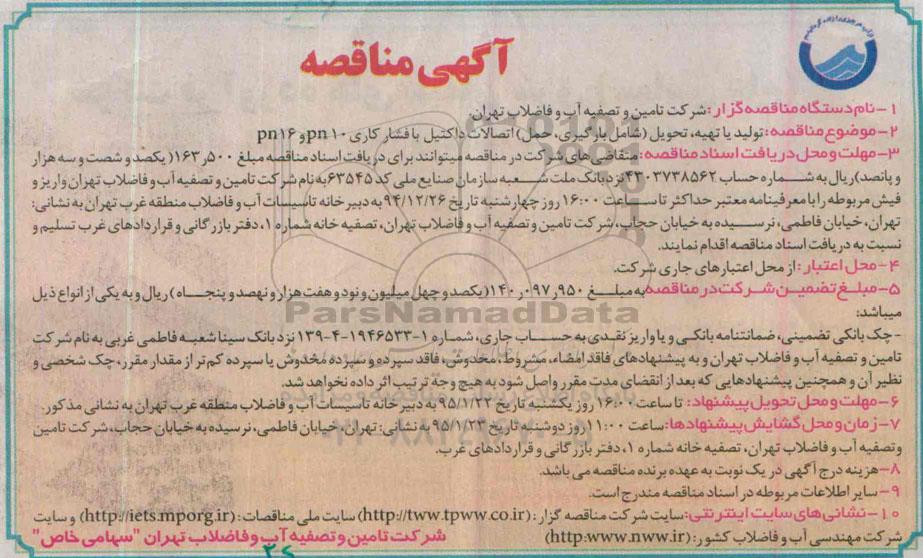 آگهی مناقصه
۱- نام دستگاه مناقصه گزار: شرکت تامین و تصفیه آب و فاضلاب تهران.
۲- موضوع مناقصه: تولید یا تهیه، تحویل (شامل بارگیری، حمل) اتصالات داکتیل با فشار کاری pn ۱۰ و pn۱۶
۳- مهلت و محل دریافت اسناد مناقصه: متقاضی های شرکت در مناقصه میتوانند برای دریافت اسناد مناقصه مبلغ ۱۶۳ر۵۰۰ (یکصد و شصت و سه هزار
و پانصد) ریال به شماره حساب ۴۳۰۳۷۳۸۵۶۲ نزد بانک ملت شعبه سازمان صنایع ملی کد ۶۳۵۴۵ به نام شرکت تامین و تصفیه آب و فاضلاب تهران واریز و
فیش مربوطه را با معرفینامه معتبر حداکثر تا ساعت ۱۶:۰۰ روز چهارشنبه تاریخ ۹۴/۱۲/۲۶ به دبیرخانه تاسیسات آب و فاضلاب منطقه غرب تهران به نشانی:
تهران، خیابان فاطمی، نرسیده به خیابان حجاب، شرکت تامین و تصفیه آب و فاضلاب تهران، تصفیه خانه شماره ۱، دفتر بازرگانی و قراردادهای غرب تسلیم و
نسبت به دریافت اسناد مناقصه اقدام نمایند.
۴- محل اعتبار: از محل اعتبارهای جاری شرکت.
۵- مبلغ تضمین شرکت در مناقصه: به مبلغ ۱۴۰ر۰۹۷ر۹۵۰ (یکصد و چهل میلیون و نود و هفت هزار و نهصد و پنجاه) ریال و به یکی از انواع ذیل
میباشد:
- چک بانکی تضمینی، ضمانتنامه بانکی و یا واریز نقدی به حساب جاری، شماره ۱-۱۹۴۶۵۳۳-۴-۱۳۹ نزد بانک سینا شعبه فاطمی غربی به نام شرکت
تامین و تصفیه آب و فاضلاب تهران و به پیشنهادهای فاقد امضاء، مشروط، مخدوش، فاقد سپرده و سپرده مخدوش یا سپرده کم تر از مقدار مقرر، چک شخصی و
نظیر آن و همچنین پیشنهادهایی که بعد از انقضای مدت مقرر واصل شود به هیچ وجه ترتیب اثر داده نخواهد شد.
۶- مهلت و محل تحویل پیشنهاد: تا ساعت ۱۶:۰۰ روز یکشنبه تاریخ ۹۵/۱/۲۲ به دبیرخانه تاسیسات آب و فاضلاب منطقه غرب تهران به نشانی مذکور.
۷- زمان و محل گشایش پیشنهادها: ساعت ۱۱:۰۰ روز دوشنبه تاریخ ۹۵/۱/۲۳ به نشانی: تهران، خیابان فاطمی، نرسیده به خیابان حجاب، شرکت تامین
و تصفیه آب و فاضلاب تهران، تصفیه خانه شماره ۱، دفتر بازرگانی و قراردادهای غرب.
۸- هزینه درج آگهی در یک نوبت به عهده برنده مناقصه می باشد.
۹- سایر اطلاعات مربوطه در اسناد مناقصه مندرج است.
۱۰- نشانی های سایت اینترنتی: سایت شرکت مناقصه گزار: (http://tww.tpww.co.ir) سایت ملی مناقصات: (http://iets.mporg.ir) و سایت
شرکت مهندسی آب و فاضلاب کشور: (http:www.nww.ir)
شرکت تامین و تصفیه آب و فاضلاب تهران "سهامی خاص"
ParsNamadData